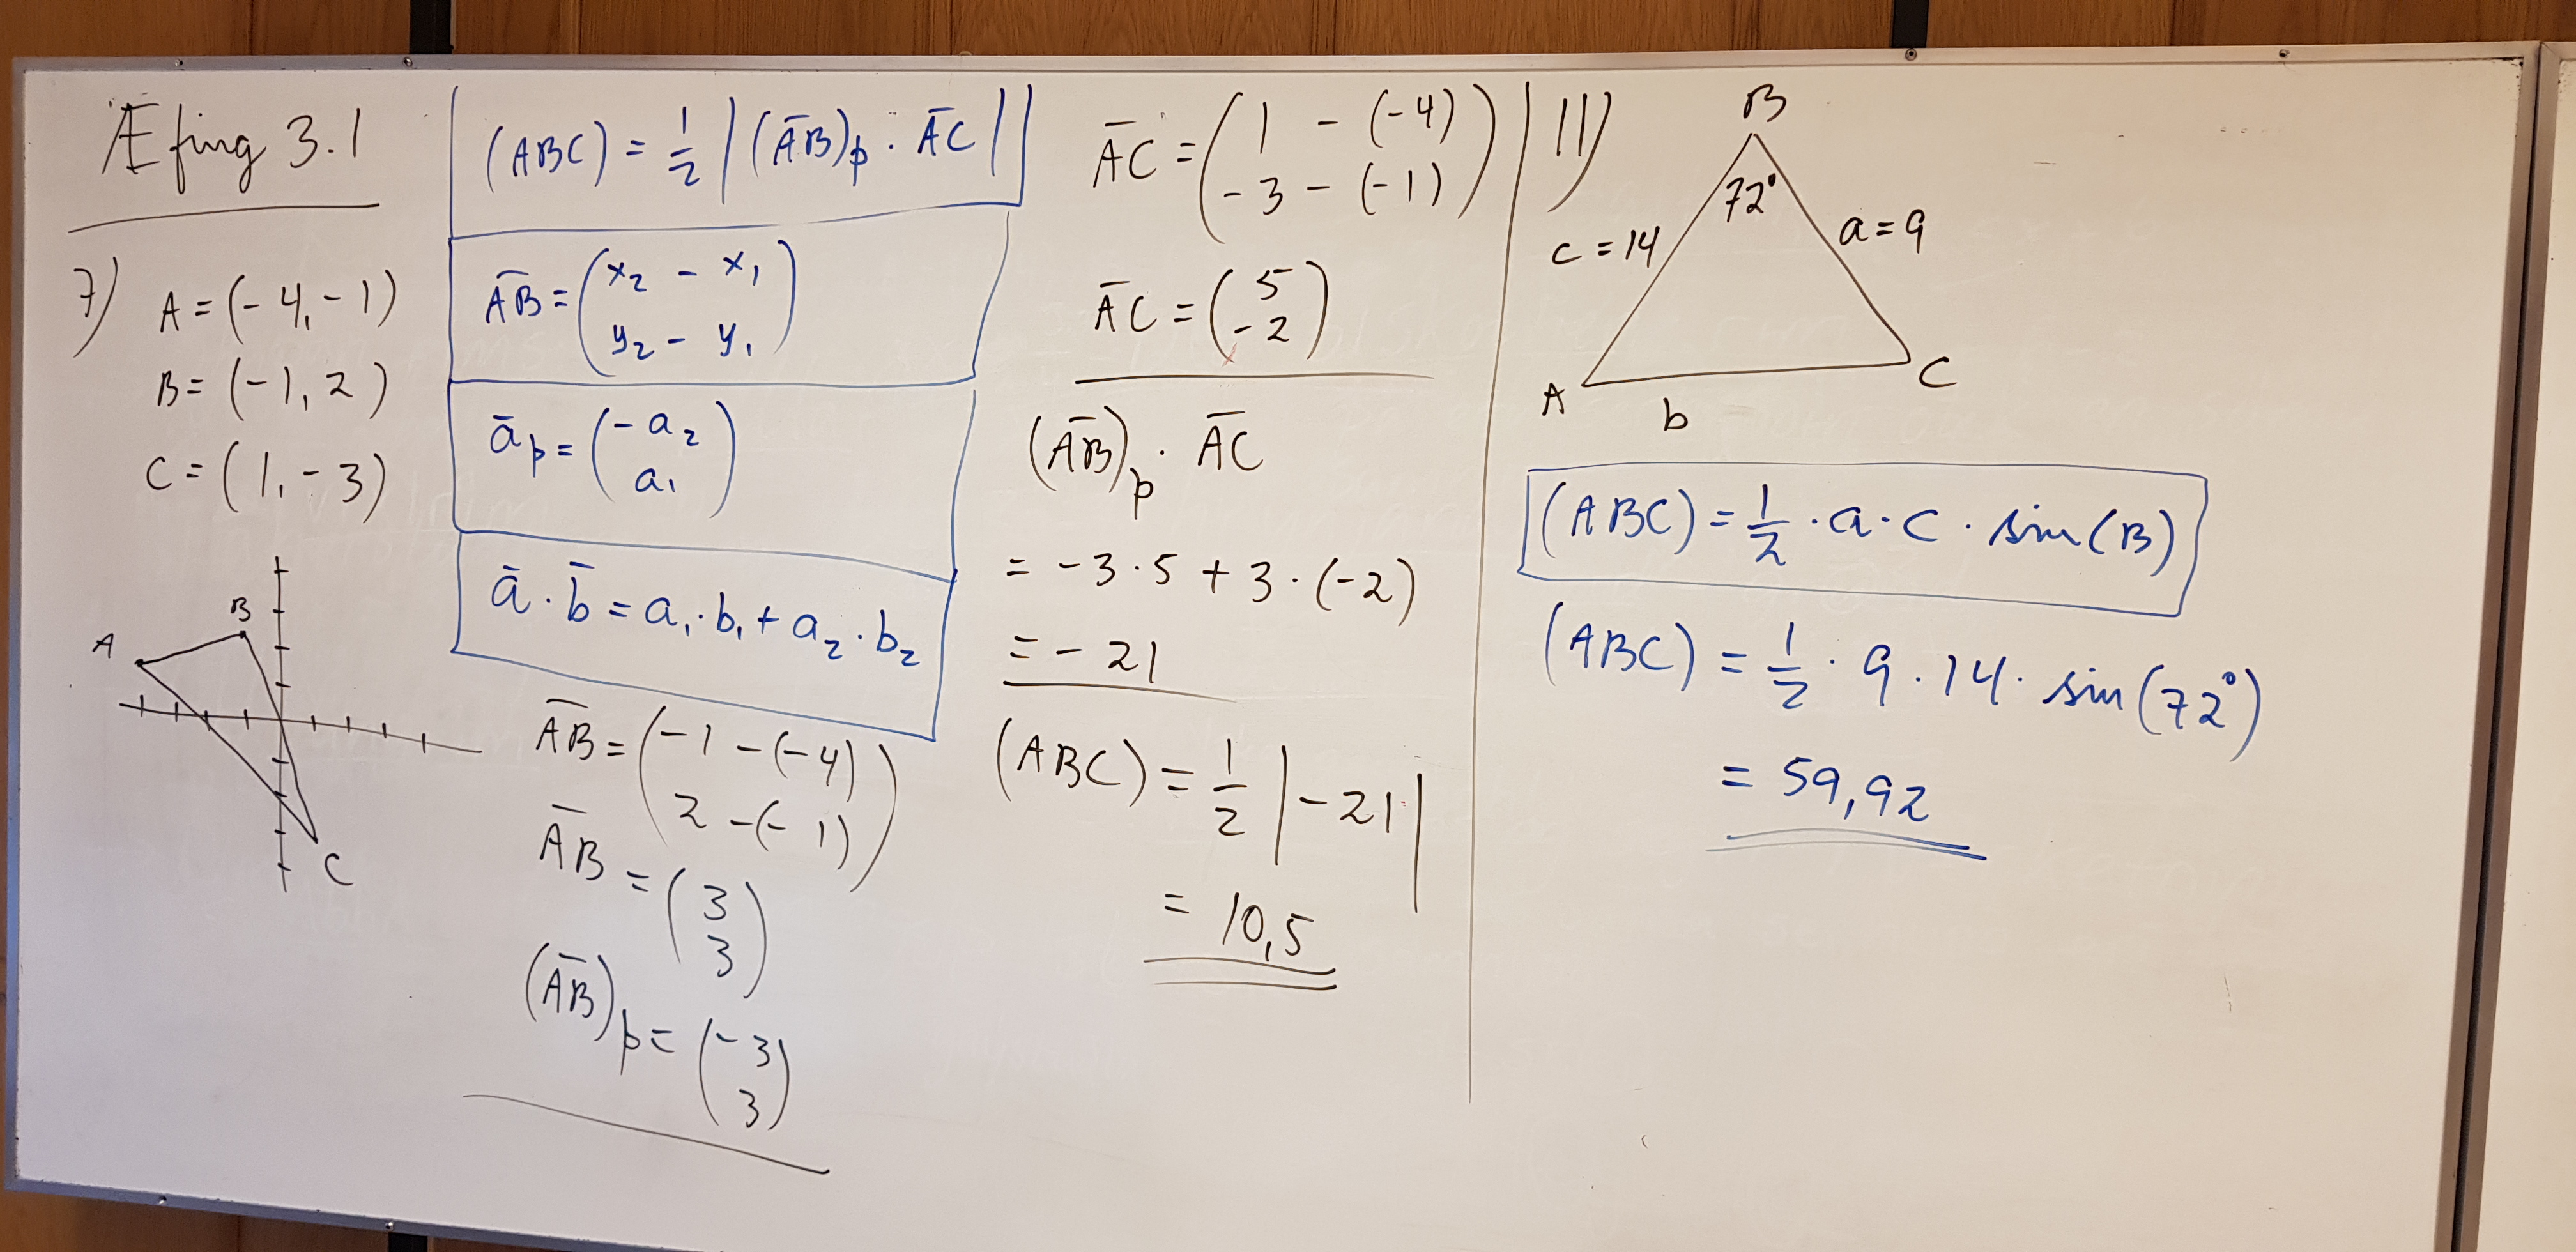 Æfing 3.1
7)
A = (-4, -1)
B = (-1, 2)
C = (1, -3)
B
A
C
(ABC) = 1/2 |(A̅B̅)p · A̅C̅|
A̅B̅ = (x₂ - x₁
y₂ - y₁)
a̅p = (-a₂
a₁)
a̅ · b̅ = a₁·b₁ + a₂·b₂
A̅B̅ = (-1 - (-4)
2 - (-1))
A̅B̅ = (3
3)
(A̅B̅)p = (-3
3)
A̅C̅ = (1 - (-4)
-3 - (-1))
A̅C̅ = (5
-2)
(A̅B̅)p · A̅C̅
= -3·5 + 3·(-2)
= -21
(ABC) = 1/2 |-21|
= 10,5
11)
B
72°
c = 14
a = 9
A
C
b
(ABC) = 1/2 · a · c · sin(B)
(ABC) = 1/2 · 9 · 14 · sin(72°)
= 59,92